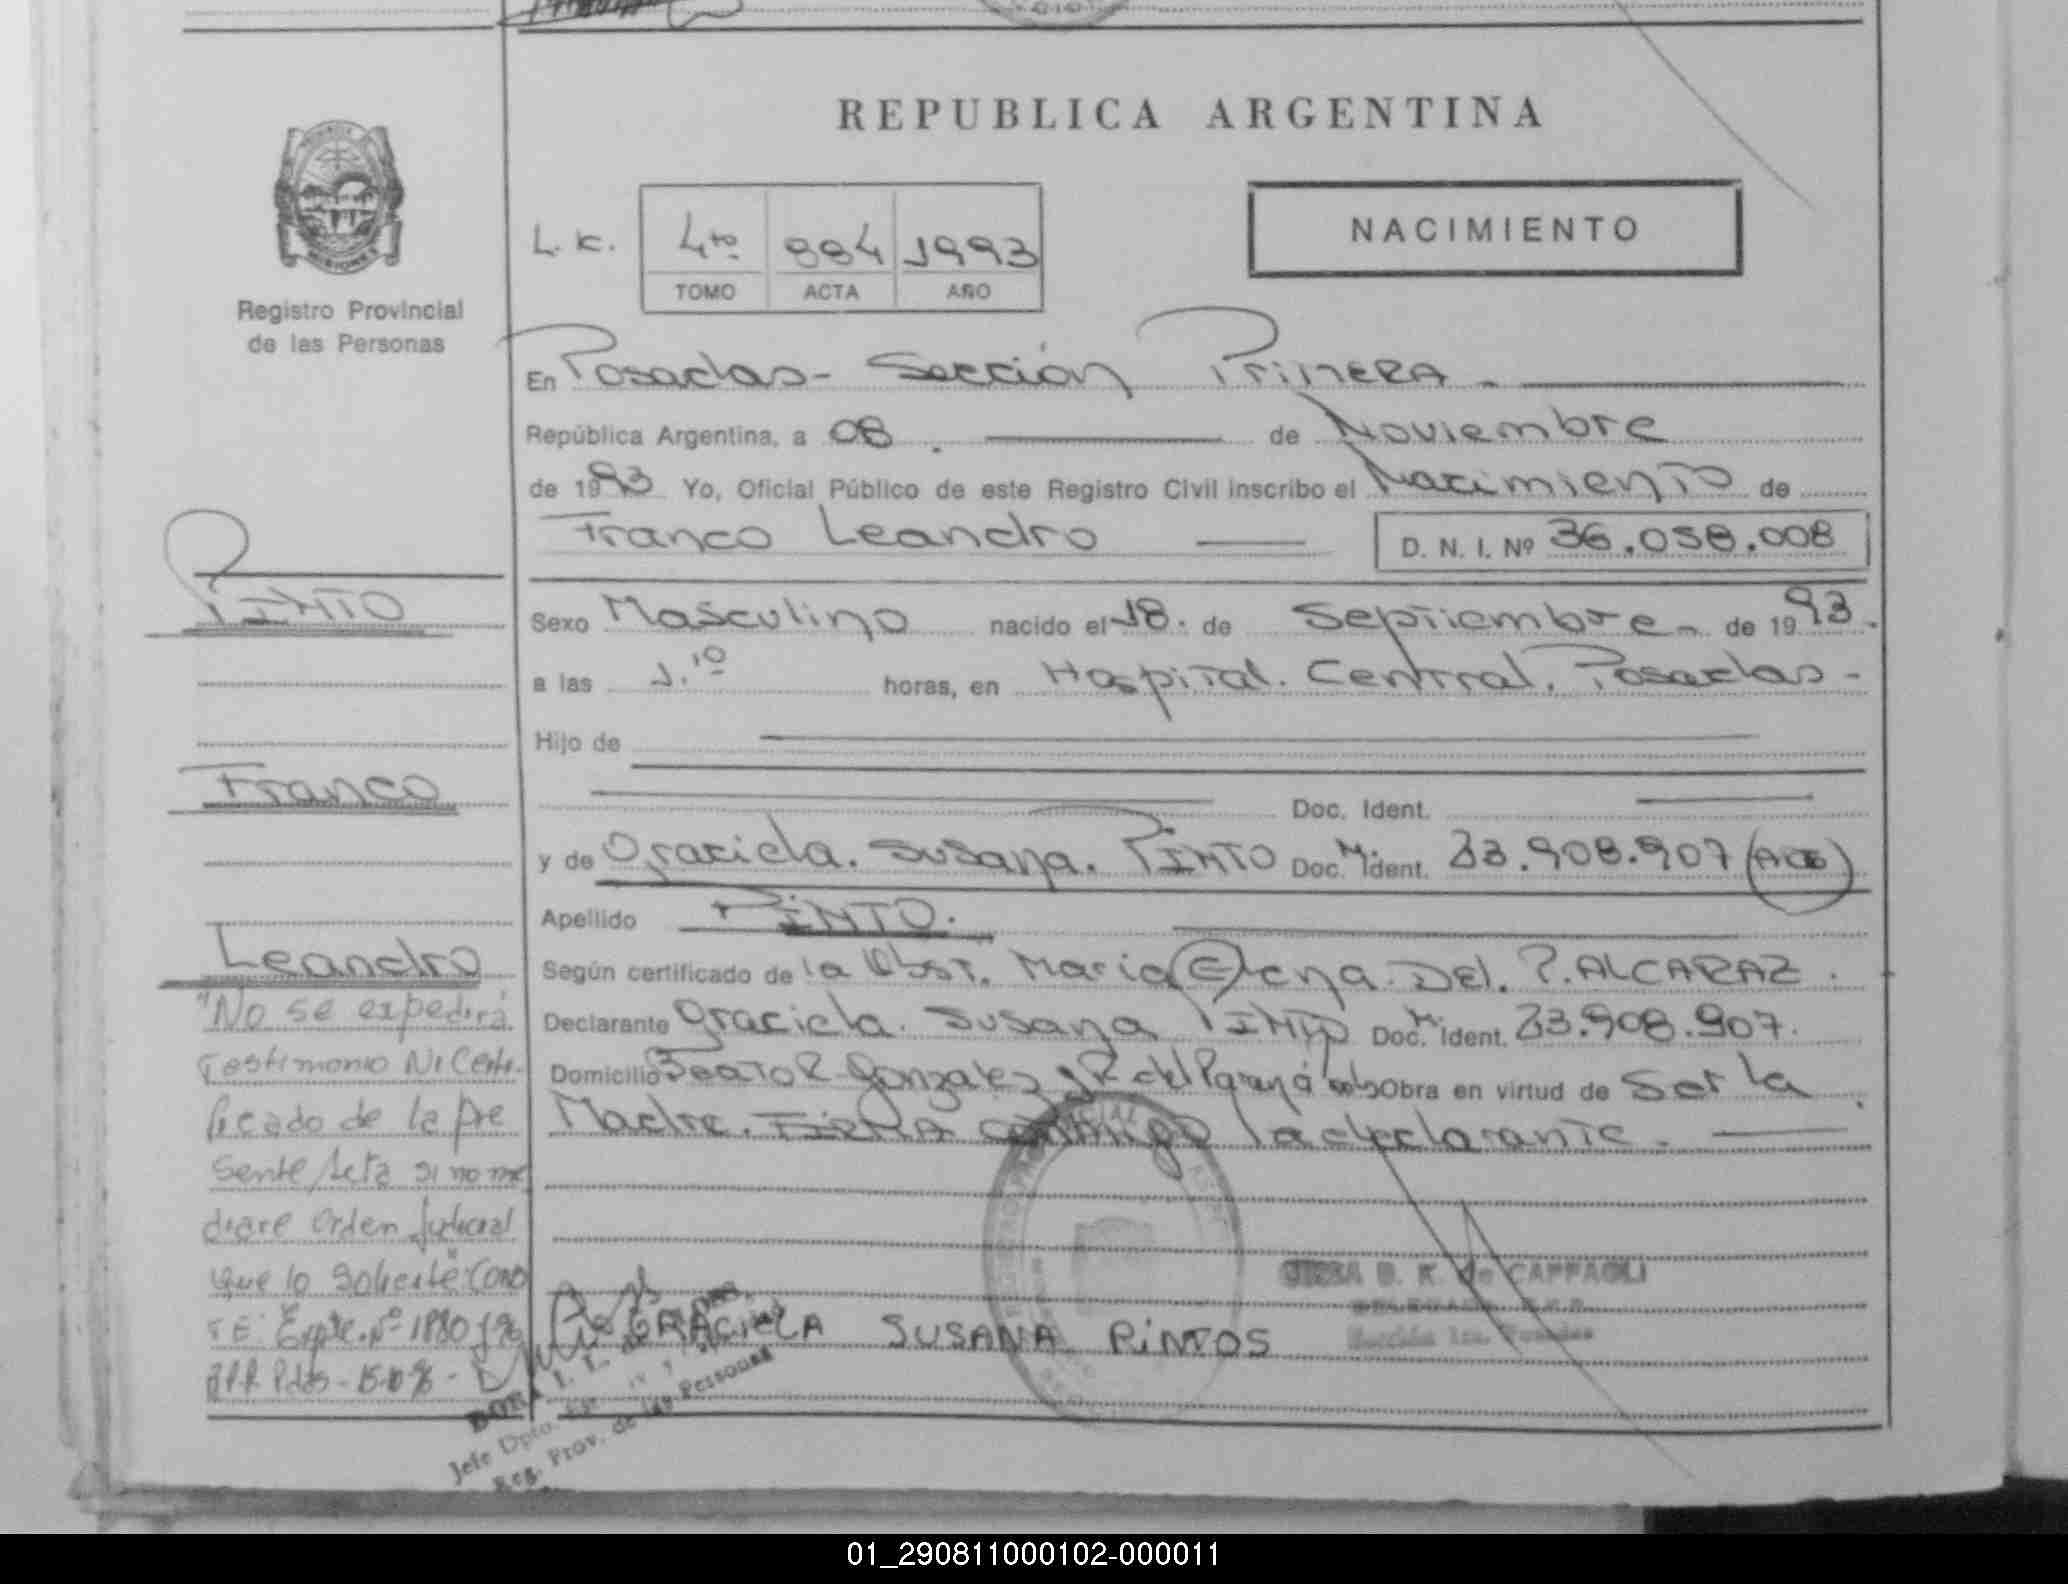 REPUBLICA ARGENTINA
L. K.
4to 884 1993
TOMO ACTA AÑO
NACIMIENTO
Registro Provincial
de las Personas
En Posadas - Sección Primera -
República Argentina, a 08. de Noviembre
de 1993 Yo, Oficial Público de este Registro Civil inscribo el Nacimiento de
Franco Leandro D. N. I. Nº 36.058.008
PINTO
Sexo Masculino nacido el 18. de Septiembre - de 1993.
a las 1.10 horas, en Hospital. Central. Posadas -
Hijo de
Franco
Doc. Ident.
y de Graciela. Susana. PINTO Doc. M. Ident. 23.908.907
Apellido PINTO.
Leandro
Según certificado de la Obst. Maria Elena. Del. P. ALCARAZ.
Declarante Graciela. Susana PINTO Doc. M. Ident. 23.908.907.
Domicilio Gonzalez y R del Paraná Obra en virtud de Ser la
Madre. FIRMA conmigo la declarante.
"No se expedirá
Testimonio Ni Certi-
ficado de la pre
sente Acta si no me
diare Orden Judicial
que lo solicite" Cons
TE: Expte. Nº 1880/96
Pdas - 15-10-96 -
DE CAPPAGLI
GRACIELA SUSANA PINTOS
Sección 1ra. Posadas
Jefe Dpto.
Reg. Prov. de las Personas
01_290811000102-000011